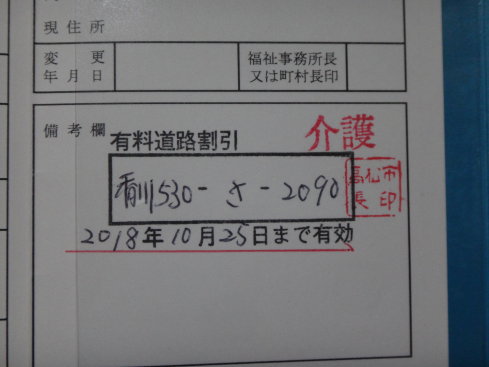 現住所
変更
年月日
福祉事務所長
又は町村長印
備考欄
有料道路割引
介護
香川530-さ-2090
高松市
長印
2018年10月25日まで有効